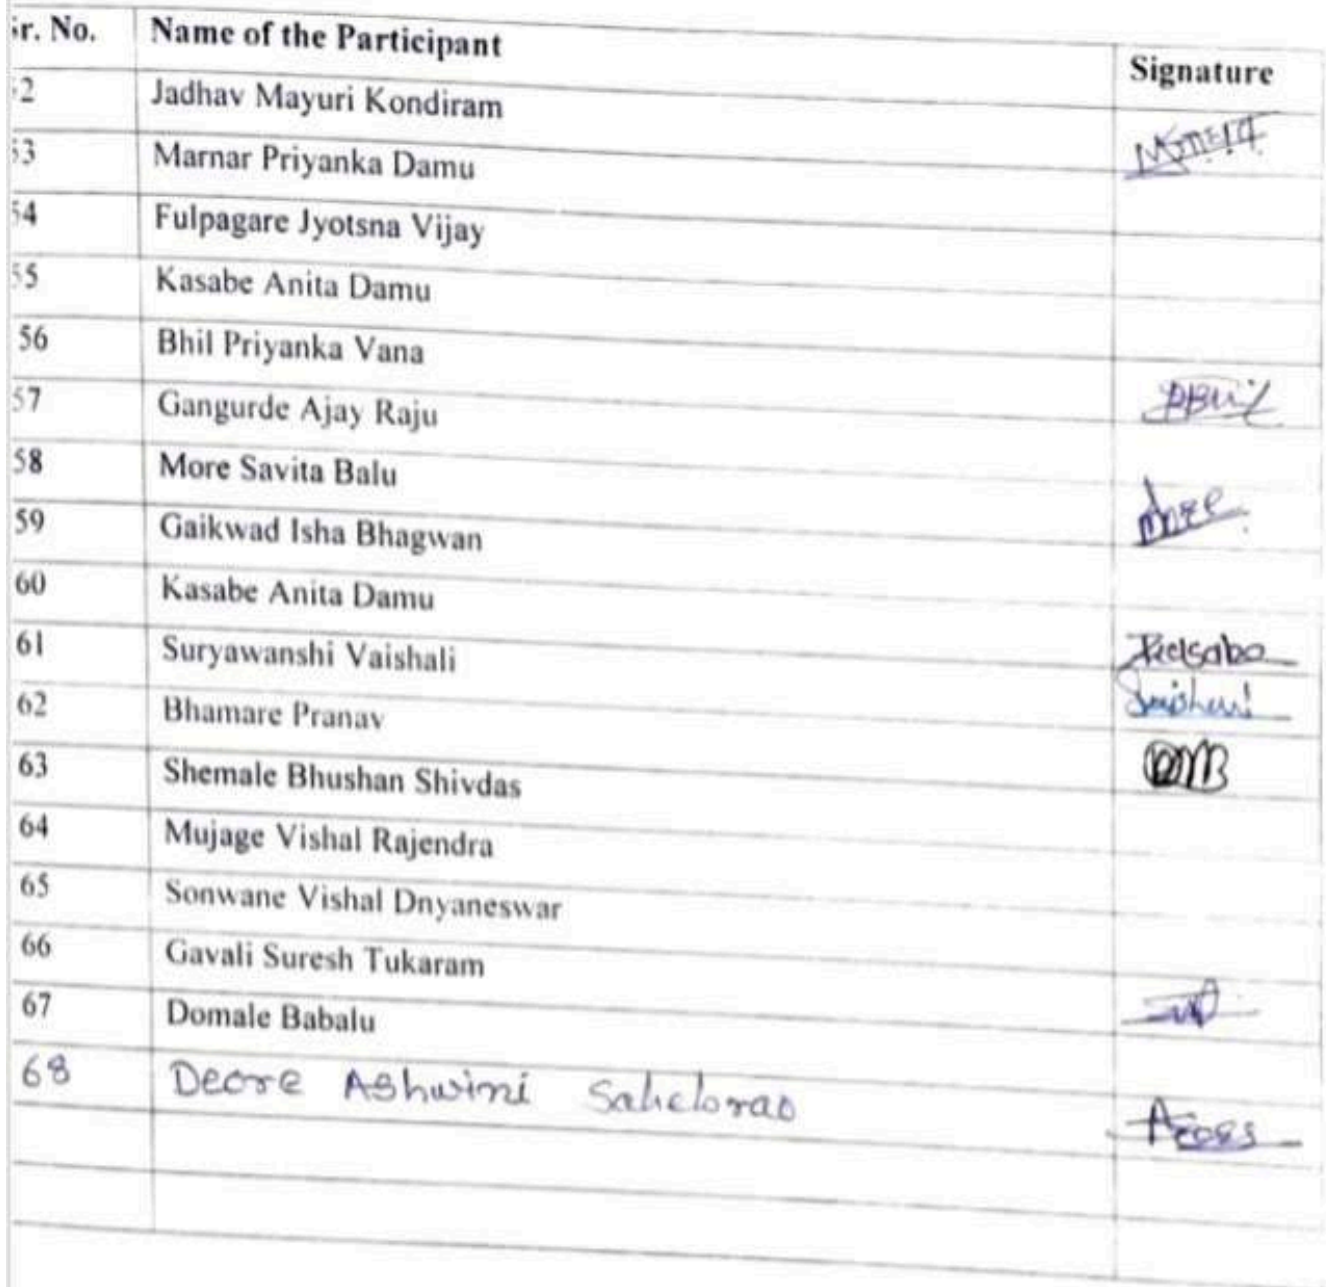 Sr. No. Name of the Participant Signature
52 Jadhav Mayuri Kondiram
53 Marnar Priyanka Damu
54 Fulpagare Jyotsna Vijay
55 Kasabe Anita Damu
56 Bhil Priyanka Vana
57 Gangurde Ajay Raju
58 More Savita Balu more
59 Gaikwad Isha Bhagwan
60 Kasabe Anita Damu
61 Suryawanshi Vaishali
62 Bhamare Pranav
63 Shemale Bhushan Shivdas
64 Mujage Vishal Rajendra
65 Sonwane Vishal Dnyaneswar
66 Gavali Suresh Tukaram
67 Domale Babalu
68 Deore Ashwini